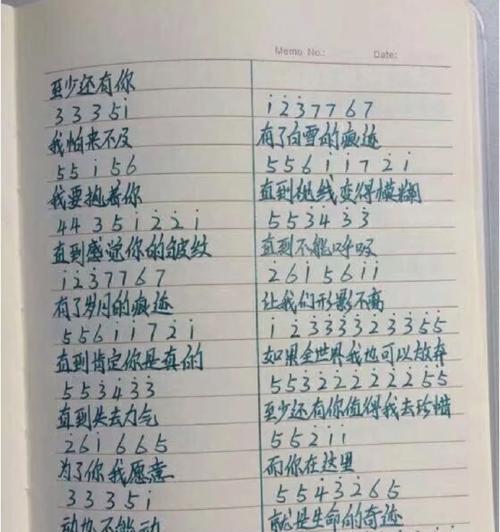 Memo No.:
Date:
至少还有你
3 3 3 5 i
我怕来不及
5 5 i 5 6
我要抱着你
4 4 3 5 1 2̇ 2̇ i
直到感觉你的皱纹
i 2̇ 3̇ 7 7 6 7
有了岁月的痕迹
5 5 6 i i 7 2̇ i
直到肯定你是真的
5 5 3̇ 4̇ 3̇ 3̇
直到失去力气
2̇ 6 i 6 6 5
为了你我愿意
3 3 3 5 i
动也不能动
i 2̇ 3̇ 7 7 6 7
有了白雪的痕迹
5 5 6 i i 7 2̇ i
直到视线变得模糊
5 5 3 4 3̇ 3̇
直到不能呼吸
2̇ 6 i 5 6 i i
让我们形影不离
i 2̇ 3̇ 3̇ 3̇ 3̇ 2̇ 3̇ 3̇ 5̇ 5̇
如果全世界我也可以放弃
5 5 3̇ 2̇ 2̇ 2̇ 2̇ 2̇ 2̇ 5 5
至少还有你值得我去珍惜
5 5 2̇ i i
而你在这里
5 5 4̇ 3̇ 2̇ 6 5
就是生命的奇迹